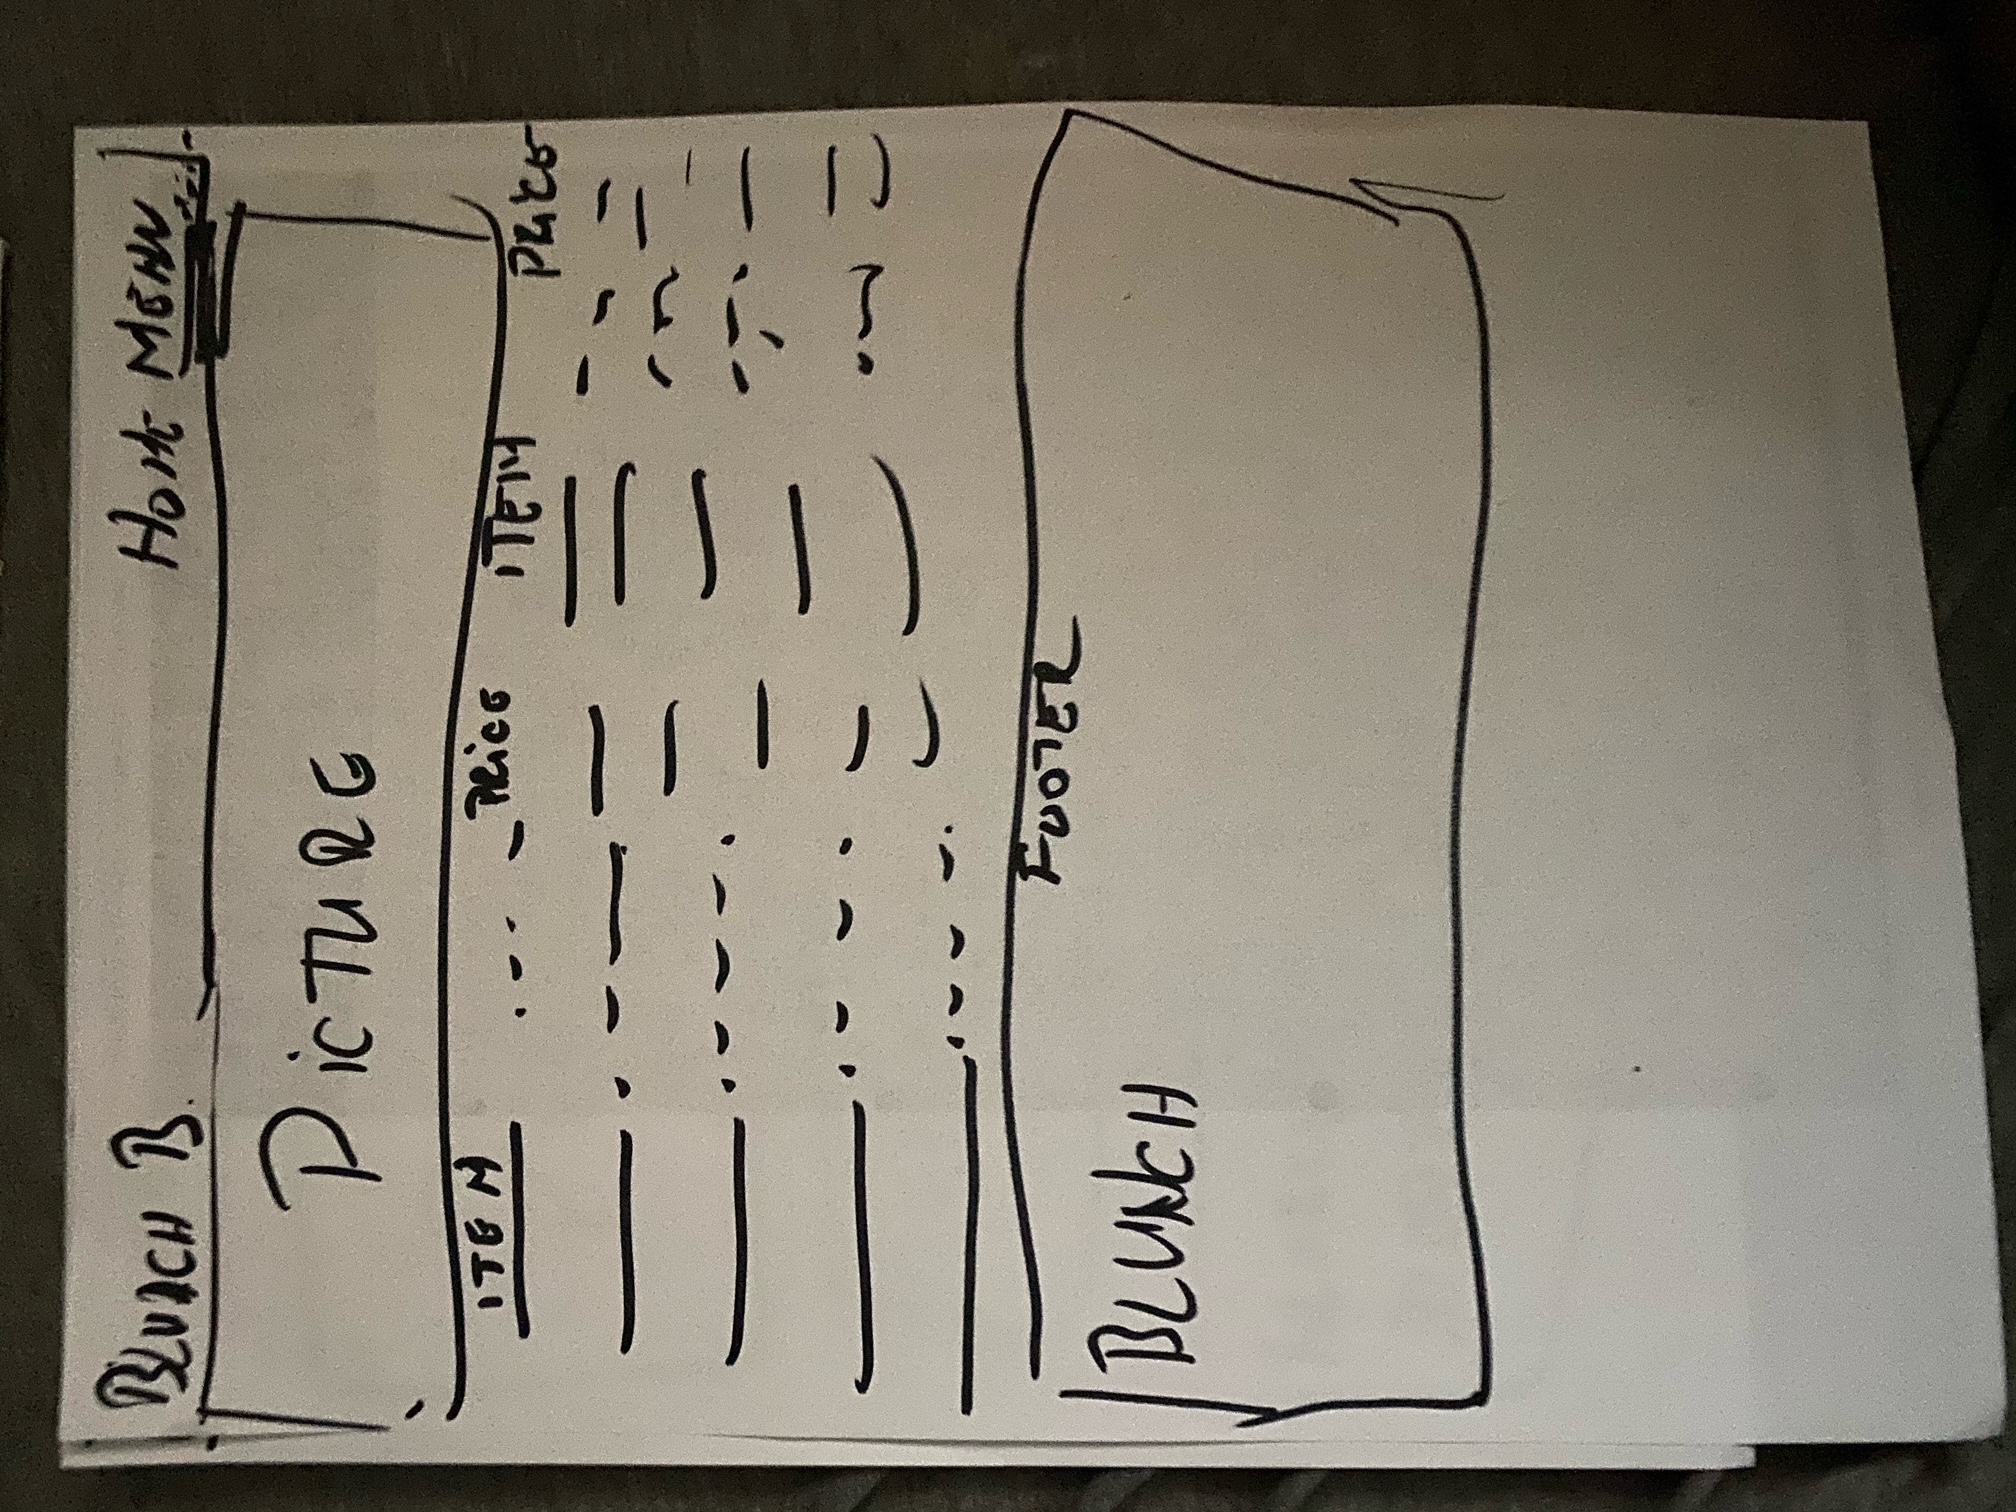 BLUNCH B. HOME MENU
PICTURE
ITEM PRICE ITEM PRICE
FOOTER
BLUNCH